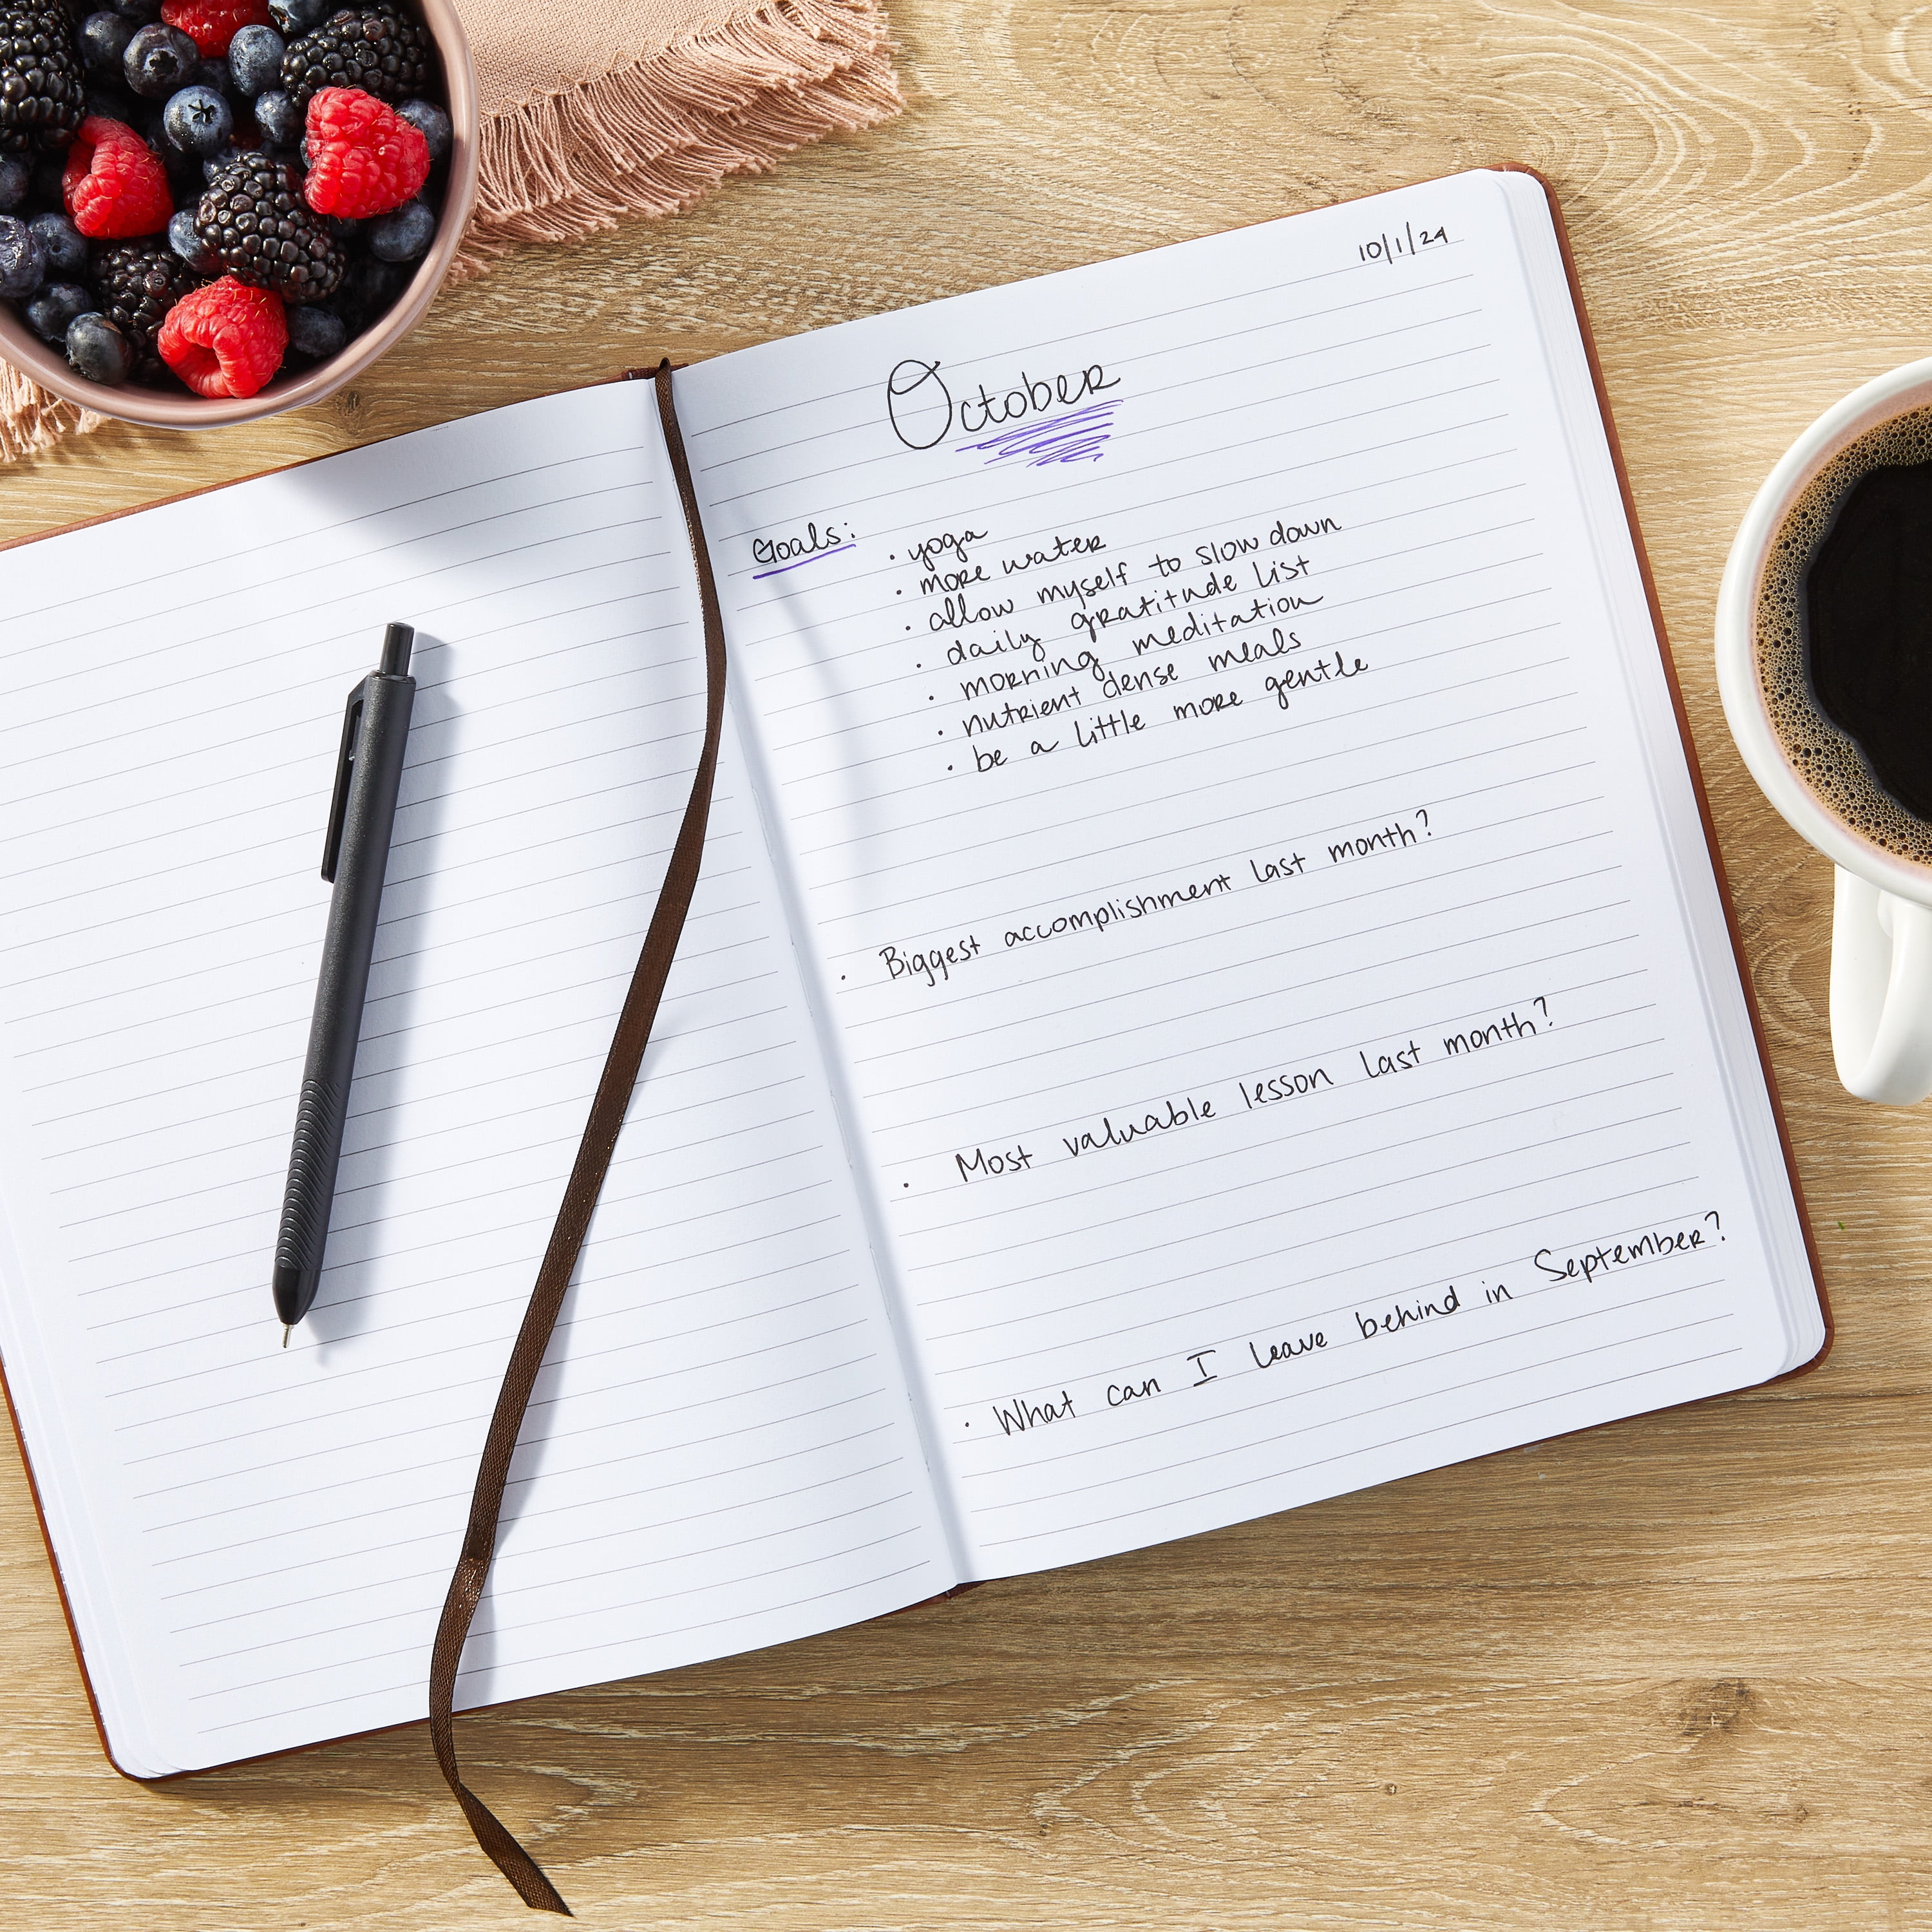 10/1/24
October
Goals:
• yoga
• more water
• allow myself to slow down
• daily gratitude list
• morning meditation
• nutrient dense meals
• be a little more gentle
• Biggest accomplishment last month?
• Most valuable lesson last month?
• What can I leave behind in September?